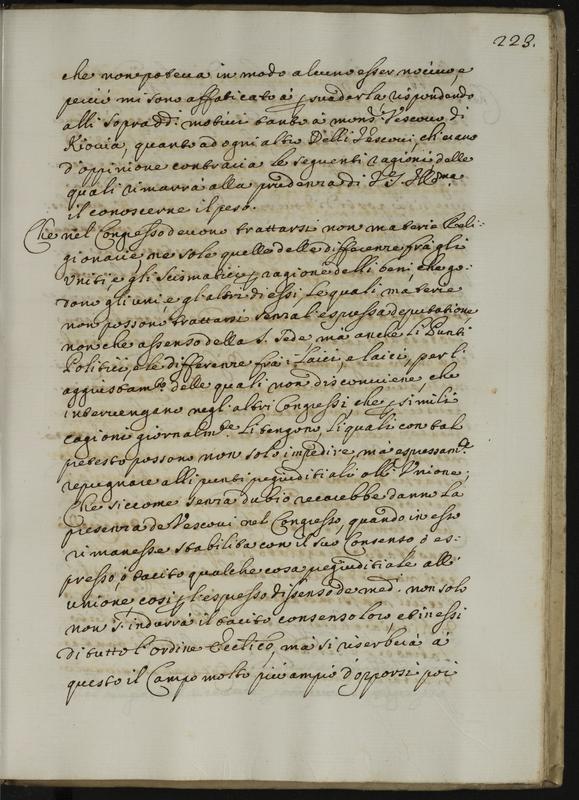 223.
che non poteva in modo alcuno esser nocivo, e
perciò mi sono affaticato á persuaderla rispondendo
alli sopradd.i motivi tanto á mons.r Vescovo di
Kiovia, quanto ad ogni altro delli Vescovi, ch'erano
d'oppinione contraria le seguenti ragioni delle
quali rimarrà alla prudenza di V.S. Ill.ma
il conoscerne il peso.
Che nel Congresso devono trattarsi non materie Reli-
gionarie, ne sole quelle delle differenze frà gli
Uniti, e gli Scismatici per ragione delli beni, che go-
dono gli uni, e gl'altri di essi le quali materie
non possono trattarsi senza l'espressa deputatione
non che assenso della S. Sede mà anche li Punti
Politici, e le differenze frà i Laici, e laici, per l'
aggiustam.to delle quali non disconviene, che
intervengano negl'altri Congressi, che per simili
cagione giornalm.te si tengono li quali con tal
pretesto possono non solo impedire mà espressam.te
repugnare alli punti pregiuditiali all'Unione;
Che siccome senza dubio recarebbe danno la
presenza de Vescovi nel Congresso, quando in esso
rimanesse stabilita con il suo Consenso ò es-
presso, ò tacito qualche cosa pregiuditiale all'
unione così per l'espresso dissenso de med.i non solo
non s'indurrà il tacito consenso loro, et in essi
di tutto l'ordine Eccl.ico, mà si riserberà á
questo il Campo molto più ampio d'opporsi poi